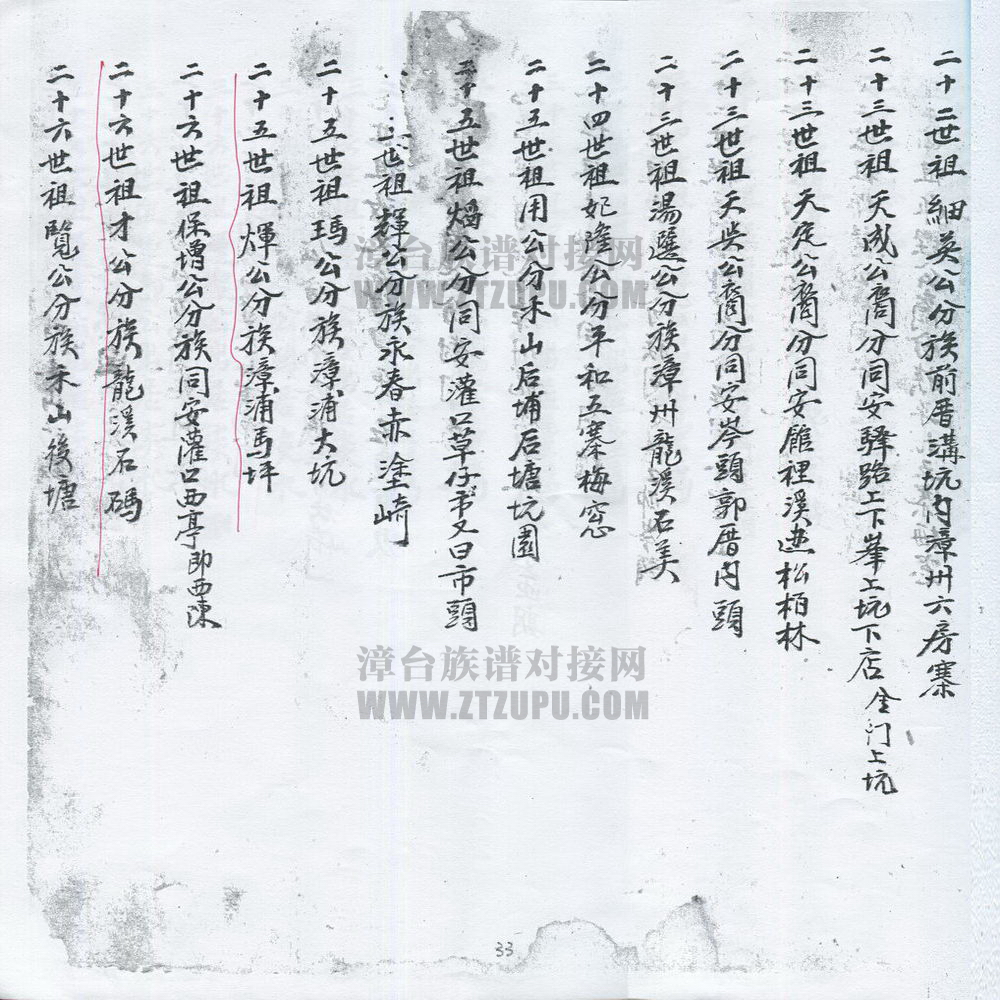 二十二世祖細英公分族前厝溝坑內漳州六房寨
二十三世祖天成公裔分同安驛路上下峯上坑下店金门上坑
二十三世祖天定公裔分同安雎裡溪邊松柏林
二十三世祖天與公裔分同安岑頭郭厝內頭
二十三世祖湯選公分族漳州龍溪石美
二十四世祖妃隆公分平和五寨梅窓
二十五世祖用公分禾山后埔后塘坑園
二十五世祖焰公分同安灌口草仔市又曰市頭
世祖輝公分族永春赤塗崎
二十五世祖瑪公分族漳浦大坑
二十五世祖煇公分族漳浦馬坪
二十六世祖保增公分族同安灌口西亭即西陳
二十六世祖才公分族龍溪石碼
二十六世祖覽公分族禾山後塘
漳台族谱对接网
WWW.ZTZUPU.COM
漳台族谱对接网
WWW.ZTZUPU.COM
33